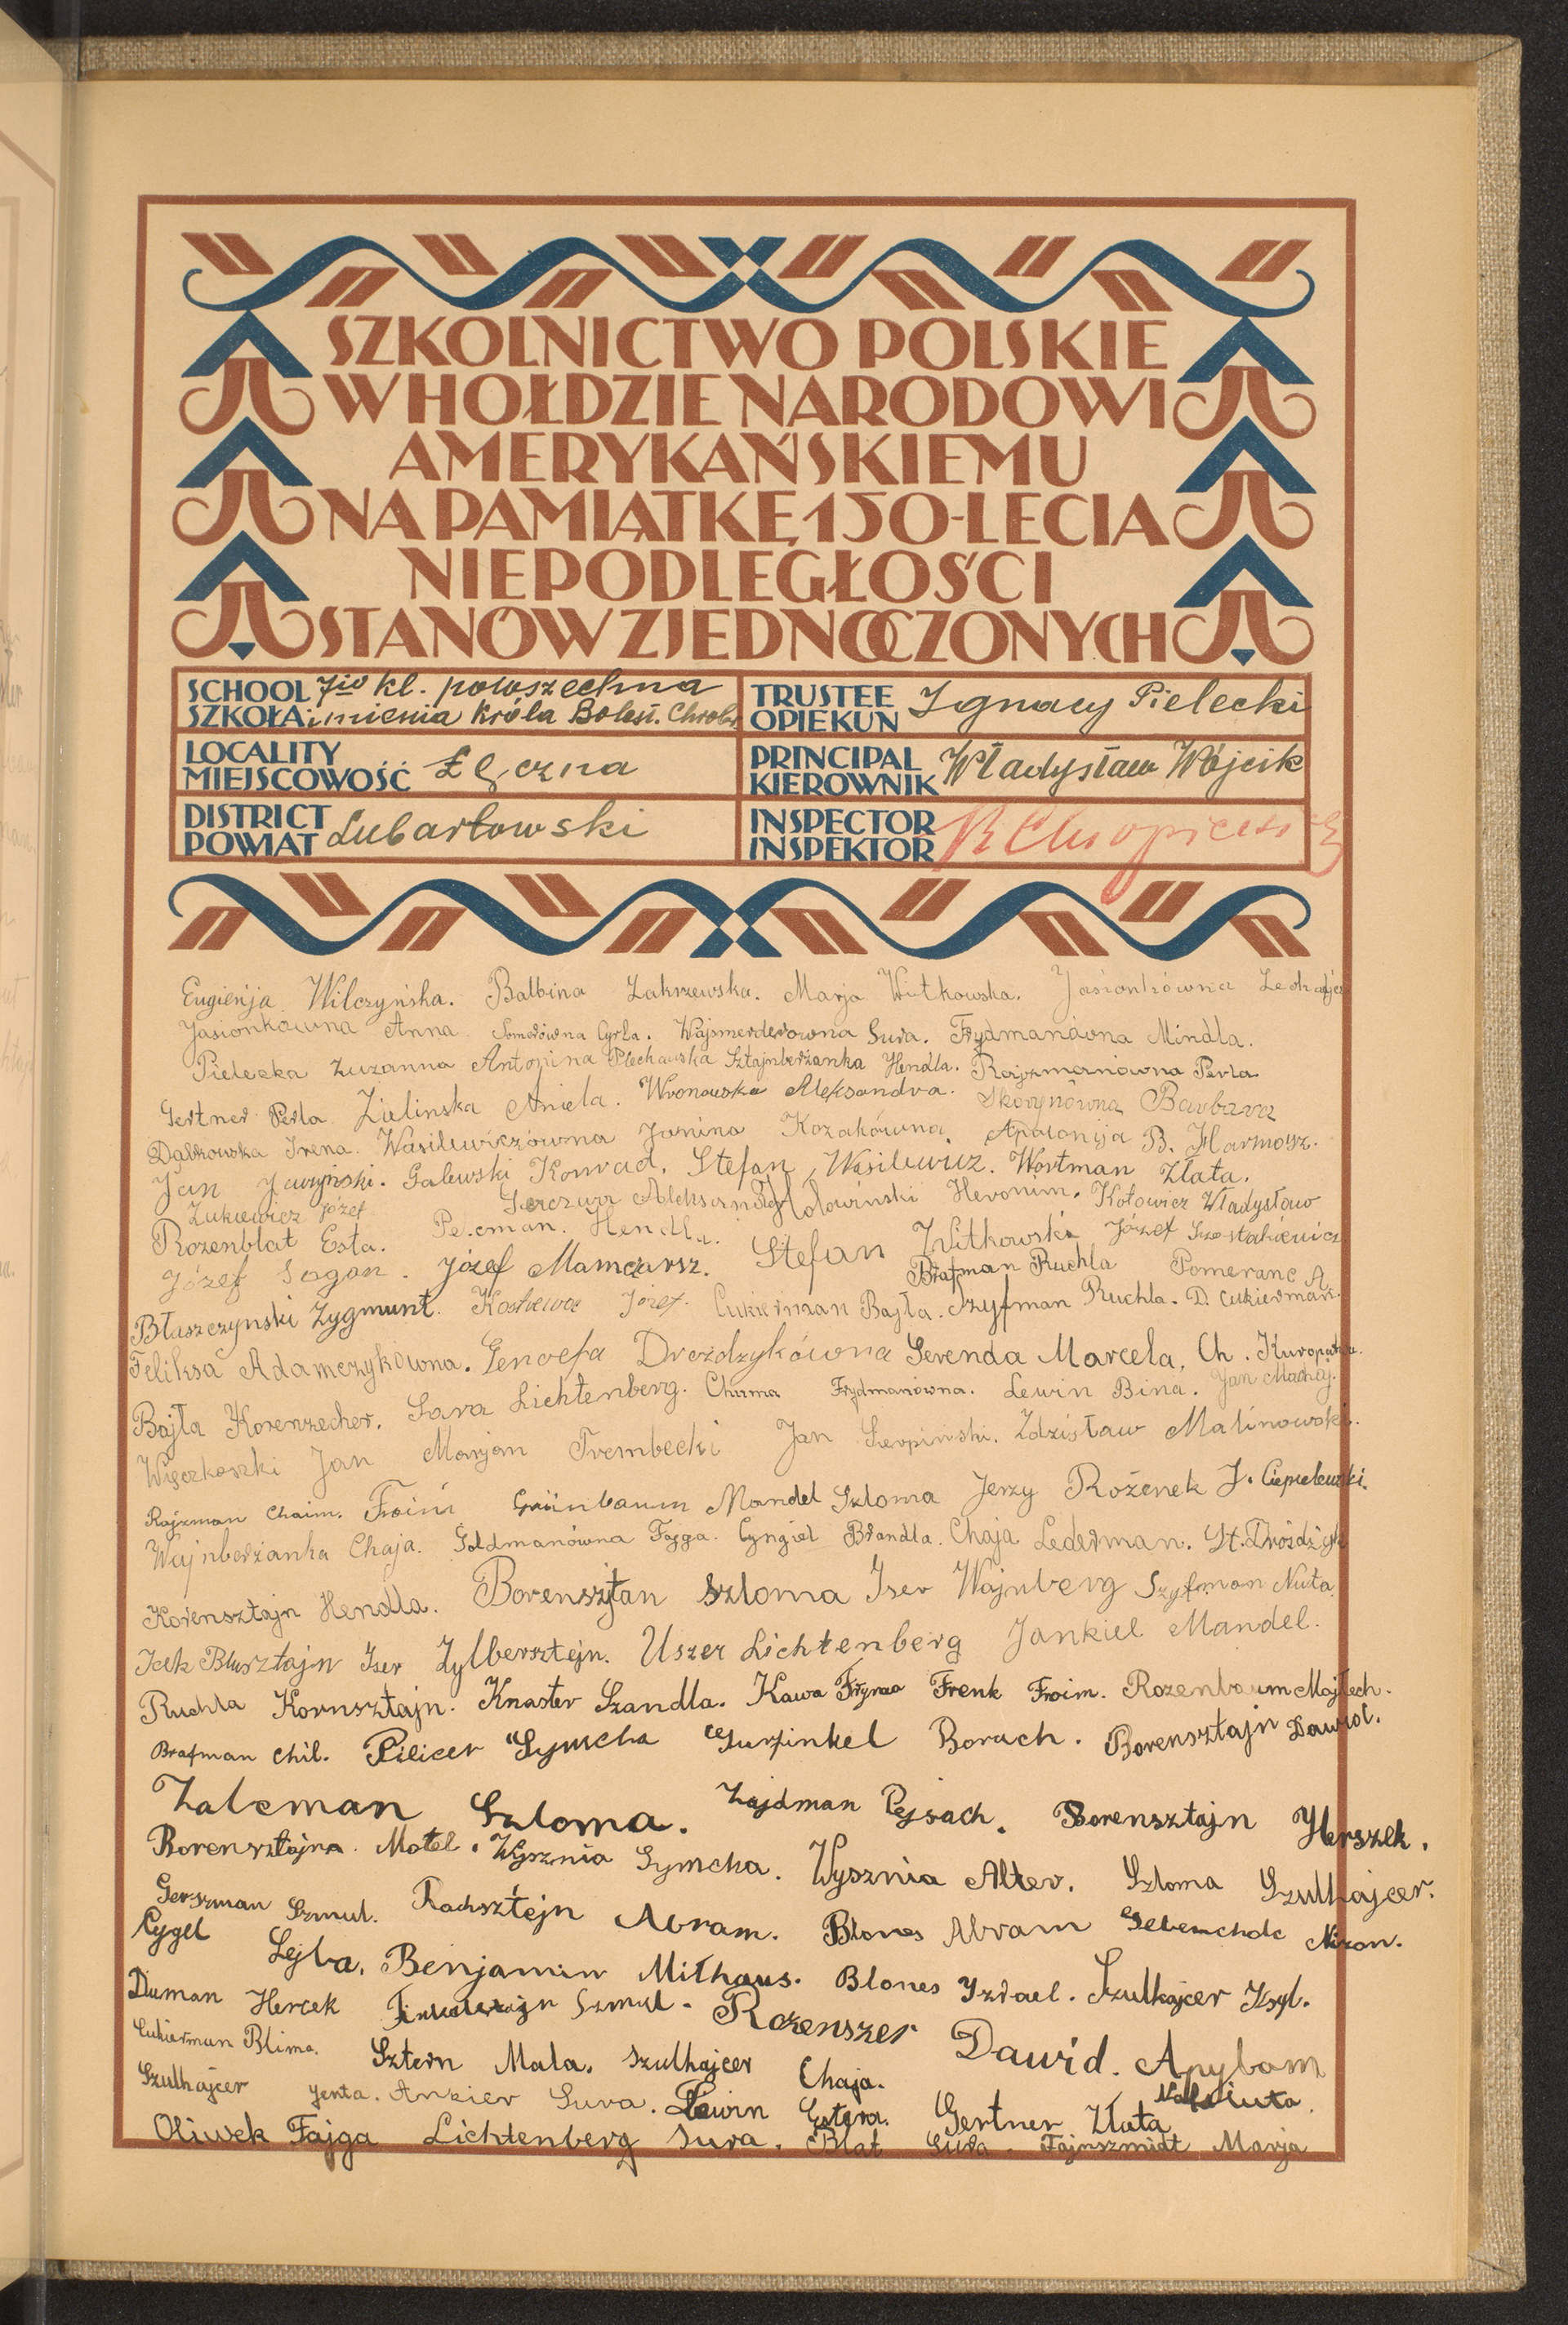 SZKOLNICTWO POLSKIE
W HOŁDZIE NARODOWI
AMERYKAŃSKIEMU
NA PAMIĄTKĘ 150-LECIA
NIEPODLEGŁOŚCI
STANÓW ZJEDNOCZONYCH
SCHOOL 7io kl. powszechna
SZKOŁA: imienia Króla Bolesł. Chrobr.
TRUSTEE
OPIEKUN Ignacy Pielecki
LOCALITY
MIEJSCOWOŚĆ Łęczna
PRINCIPAL
KIEROWNIK Władysław Wójcik
DISTRICT
POWIAT Lubartowski
INSPECTOR
INSPEKTOR
Eugienja Wilczyńska. Balbina Zakrzewska. Marja Witkowska. Jasionkówna
Jasionkówna Anna. Cyrla. Sura. Frydmanówna Mindla.
Pielecka Zuzanna Antonina Plechawska Sztajnberżanka Hendla. Rajzmanówna Perla
Gertner Perla Zielinska Aniela. Wronowska Aleksandra. Skorynówna Barbara
Dąbkowska Irena. Wasilewiczówna Janina Kozakówna, Apolonija B. Harmosz.
Jan Jawryński. Galewski Konrad. Stefan Wasilewicz. Wortman Złata.
Żukiewicz Józef. Hołowiński Heronim. Kołowicz Władysław
Rozenblat Esta. Hendla. Stefan Witkowski Józef Szostakiewicz
Józef Sagan. Józef Mamcarsz. Brafman Ruchla Pomeranc A.
Błaszczynski Zygmunt. Kostrewa Józef. Cukierman Bajła. Szyfman Ruchla. D. Cukierman.
Feliksa Adamczykówna. Genoefa Drożdzykówna Gerenda Marcela. Ch. Kuropatwa.
Bajła Korenzecher. Sara Lichtenberg. Chuma Frydmanówna. Lewin Bina. Jan Machaj.
Więczkoszki Jan Marjan Trembecki Jan Sierpinski. Zdzisław Malinowski.
Rajzman Chaim. Froim Grünbaum Mandel Szloma Jerzy Rożenek J. Ciepielewski.
Wajnberżanka Chaja. Goldmanówna Fajga. Cyngiel Brandla. Chaja Lederman. St. Drożdżyk
Korensztajn Hendla. Borensztan Szloma Iser Wajnberg Szyfman Nuta
Icek Blusztajn Iser Zylbersztejn. Uszer Lichtenberg Jankiel Mandel.
Ruchla Kornsztajn. Knaster Szandla. Kawa Frymа Frenk Froim. Rozenbaum Majlech.
Brafman Chil. Pilicer Symcha Gurfinkel Borach. Borensztajn Dawid.
Zalcman Szloma. Zajdman Pejsach. Borensztajn Herszek.
Borensztajn Motel. Wysznia Symcha. Wysznia Alter. Szloma Szulhajcer.
Gerszman Szmul. Rachsztejn Abram. Blones Abram Nizon.
Cygel Lejba. Benjamin Milhaus. Blones Izrael. Szulhajcer Josyl.
Duman Hercek Szmul. Rozenszer Dawid. Apybam
Cukierman Blima. Sztern Mala. Szulhajcer Chaja.
Szulhajcer Jenta. Ankier Sura. Lewin Estera. Gertner Złata
Oliwek Fajga Lichtenberg Sura. Blat Sura. Fajnszmidt Marja